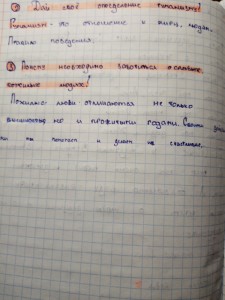 ① Дай своё определение гуманизма?
Гуманизм - это отношение к миру, людям.
Правила поведения.
③ Почему необходимо заботиться о слабых,
пожилых людях?
Пожилые люди отличаются не только
внешностью но и прожитыми годами. Своим
мы помогать и